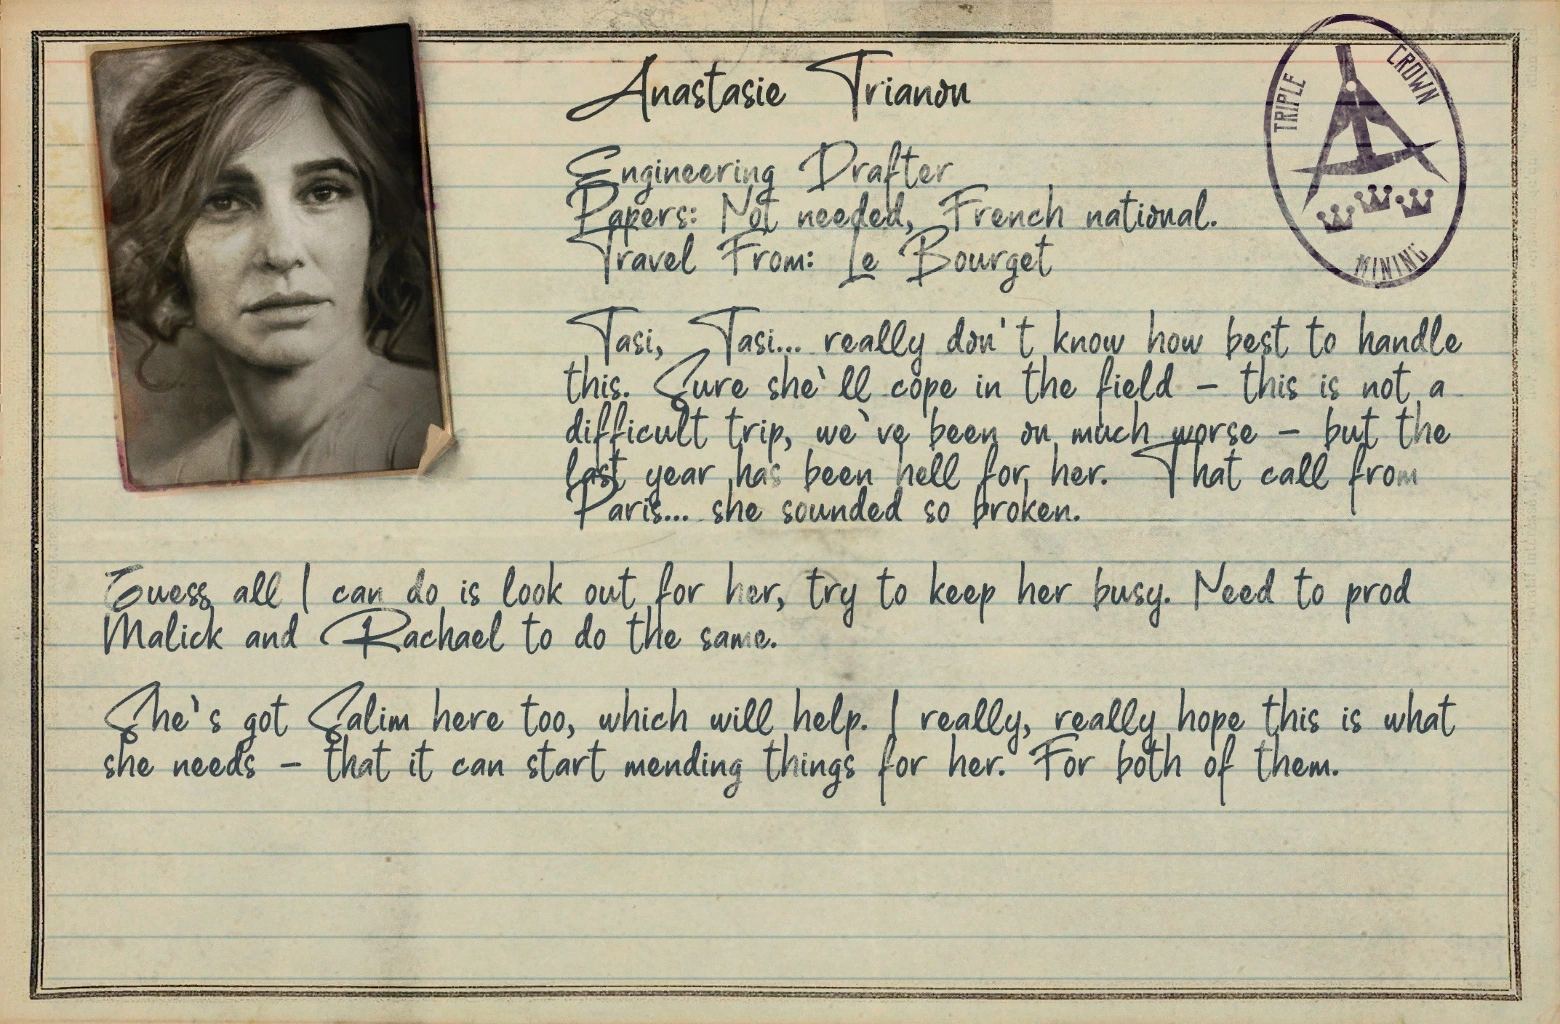 Anastasie Trianon
TRIPLE CROWN MINING
Engineering Drafter
Papers: Not needed, French national.
Travel From: Le Bourget
Tasi, Tasi... really don't know how best to handle
this. Sure she`ll cope in the field – this is not a
difficult trip, we`ve been on much worse – but the
last year has been hell for her. That call from
Paris... she sounded so broken.
Guess all I can do is look out for her, try to keep her busy. Need to prod
Malick and Rachael to do the same.
She`s got Salim here too, which will help. I really, really hope this is what
she needs – that it can start mending things for her. For both of them.